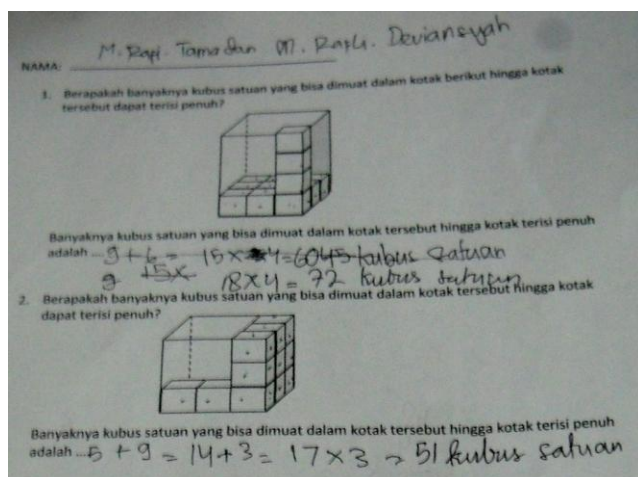 M. Rapi. Tama dan M. Rapli. Deviansyah
NAMA:
1. Berapakah banyaknya kubus satuan yang bisa dimuat dalam kotak berikut hingga kotak
tersebut dapat terisi penuh?
Banyaknya kubus satuan yang bisa dimuat dalam kotak tersebut hingga kotak terisi penuh
adalah ... 9 + 6 = 15 x 4 = 6045 kubus satuan
9 +5x 18 x 4 = 72 kubus satuan
2. Berapakah banyaknya kubus satuan yang bisa dimuat dalam kotak tersebut hingga kotak
dapat terisi penuh?
Banyaknya kubus satuan yang bisa dimuat dalam kotak tersebut hingga kotak terisi penuh
adalah ...5 + 9 = 14 + 3 = 17 x 3 = 51 kubus satuan